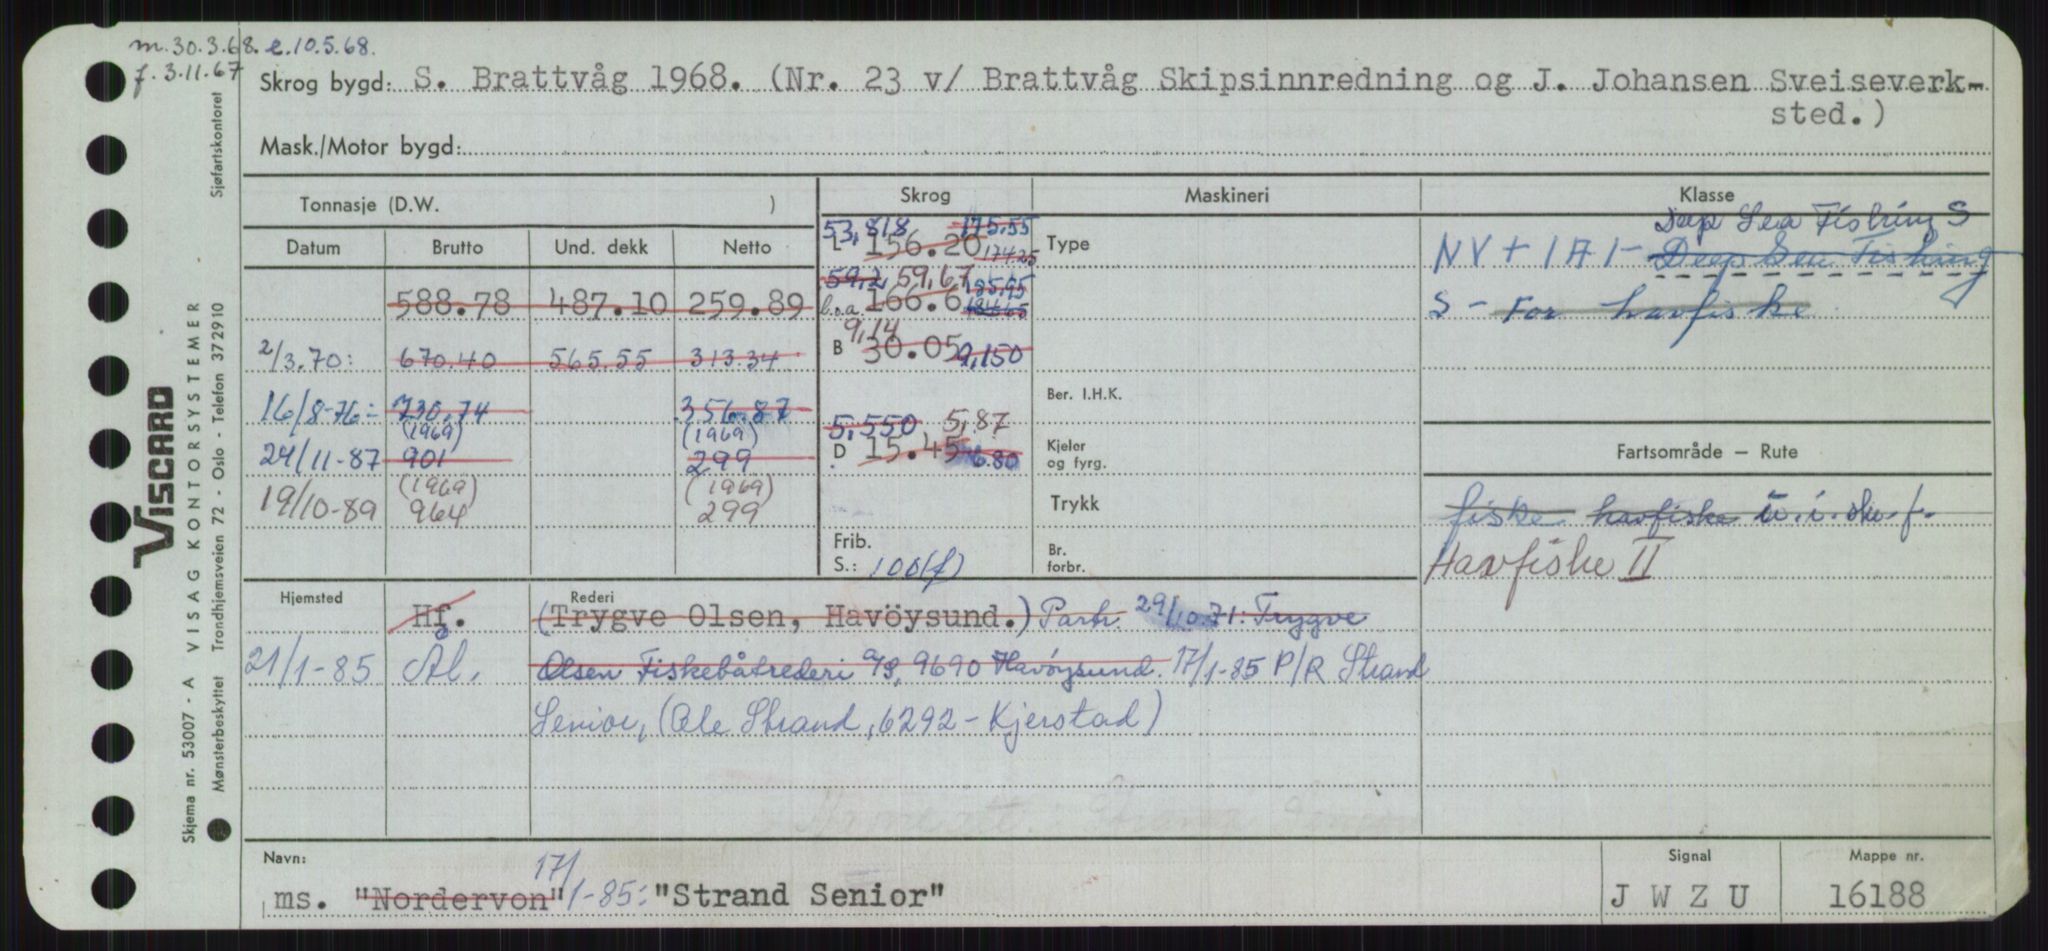 m. 30.3.68. e. 10.5.68.
f. 3.11.67
Skrog bygd: S. Brattvåg 1968. (Nr. 23 v/ Brattvåg Skipsinnredning og J. Johansen Sveiseverk-
sted.)
Mask./Motor bygd:
Tonnasje (D.W. )
Skrog
Maskineri
Klasse
Datum
Brutto
Und. dekk
Netto
588.78 487.10 259.89
2/3.70: 670.40 565.55 313.34
16/8-76: 730,74 356.87
(1969) (1969)
24/11-87 901 299
(1969) (1969)
19/10-89 964 299
53,818 175.55
L 156.20 174.25
59,2 59,67 185,95
b.o.a. 166.6
9,14
B 30.05 9,150
5,550 5,87
D 15.45 6.80
Frib.
S.: 100(f)
Type
Ber. I.H.K.
Kjeler
og fyrg.
Trykk
Br.
forbr.
Deep Sea Fishing S
NV + 1A1 - Deep Sea Fishing
S - For havfiske
Fartsområde – Rute
fiske havfiske u.i. sku. f.
Havfiske II
Hjemsted
Rederi
Hf. (Trygve Olsen, Havöysund.) Partr. 29/10.71: Trygve
21/1-85 Ål, Olsen Fiskebåtrederi A/S, 9690 Havöysund. 17/1-85 P/R Strand
Senior, (Ole Strand, 6292 - Kjerstad)
Navn:
17/1-85:
ms. "Nordervon" "Strand Senior"
Signal
J W Z U
Mappe nr.
16188
VISCARD
VISAG KONTORSYSTEMER
Sjøfartskontoret
Skjema nr. 53007 - A
Mønsterbeskyttet Trondhjemsveien 72 - Oslo - Telefon 372910